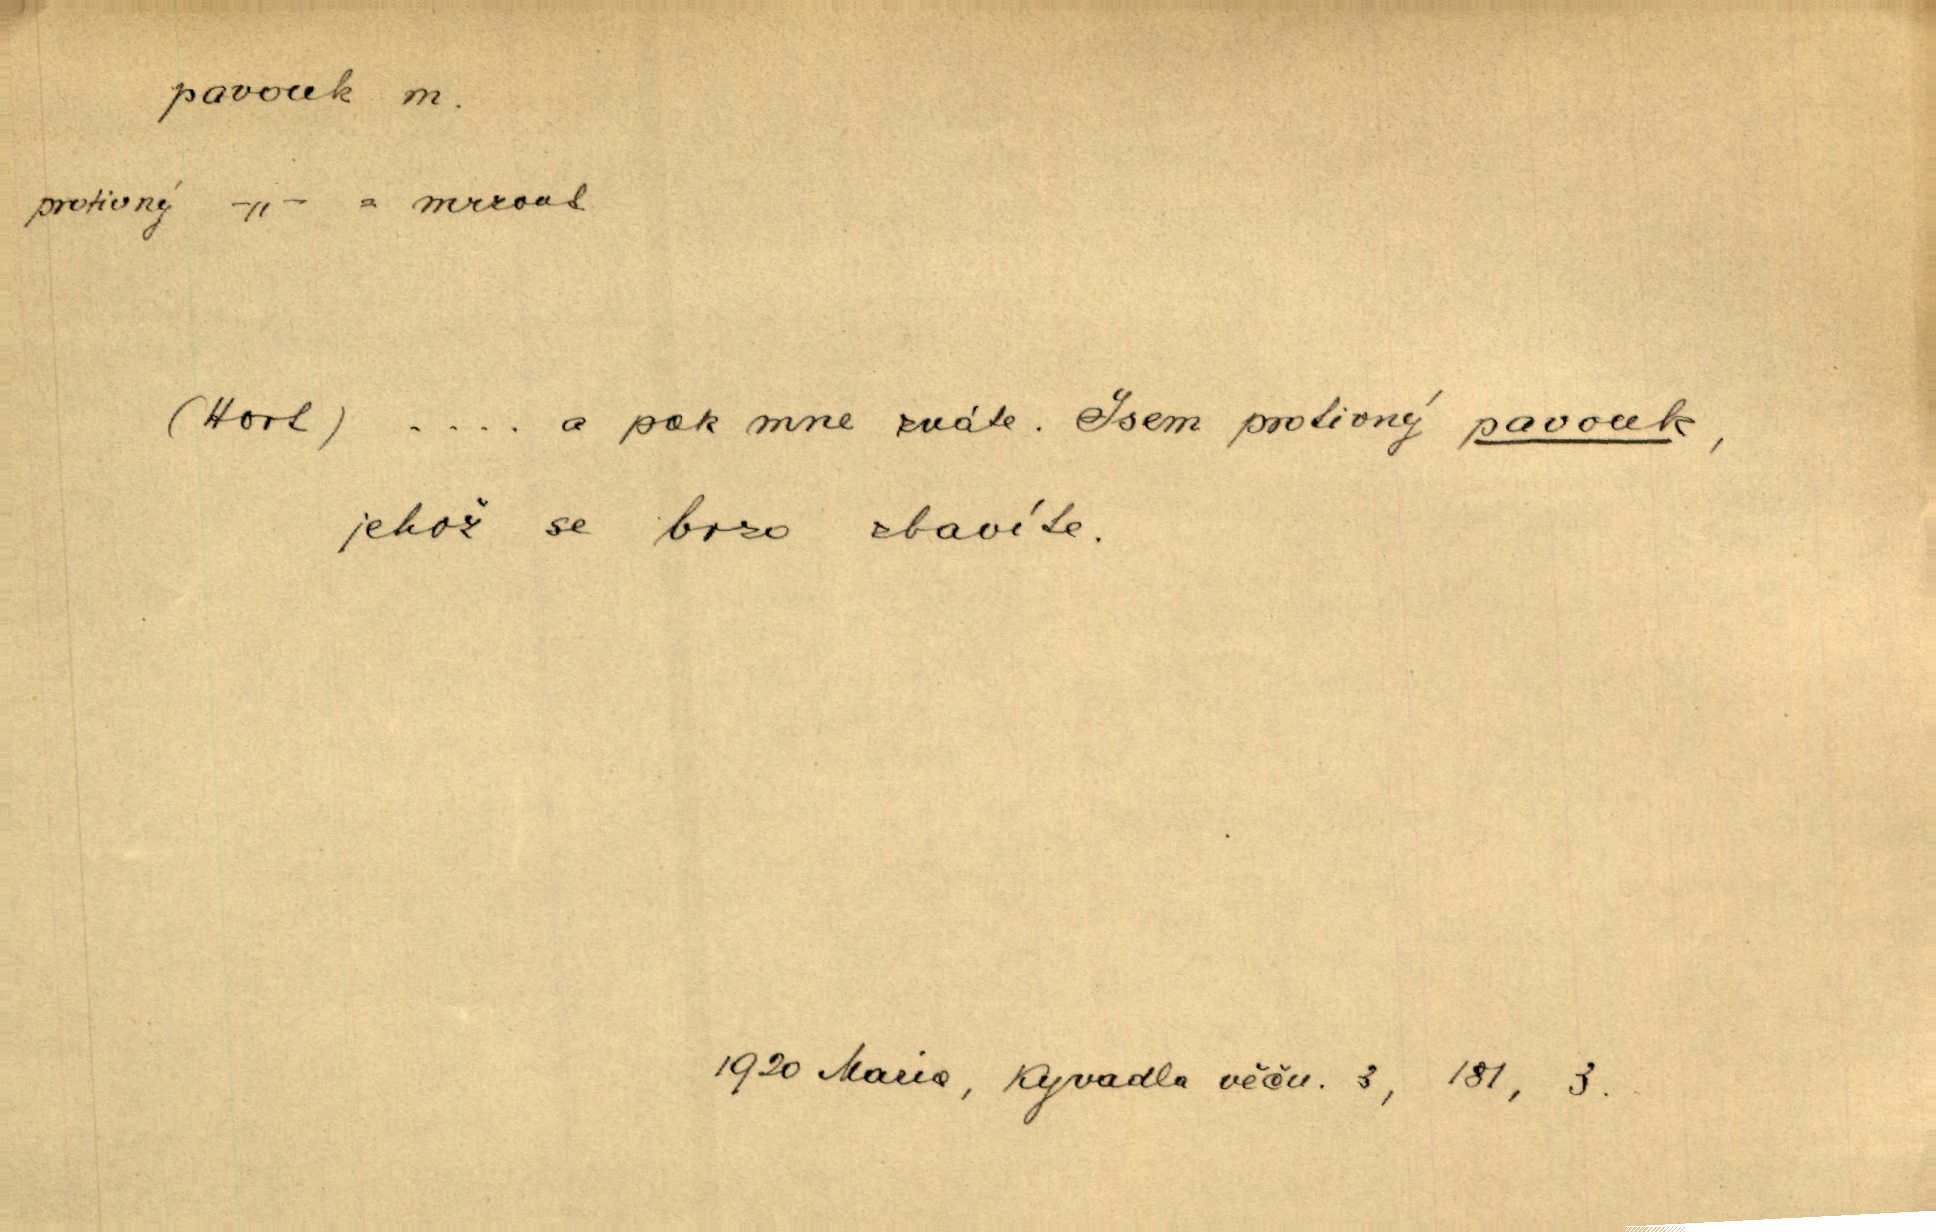 pavouk m.
protivný -„- = mrzout
(Hort) .... a pak mne znáte. Jsem protivný pavouk,
jehož se brzo zbavíte.
1920 Maria, Kyvadla věčn. 3, 181, 3.